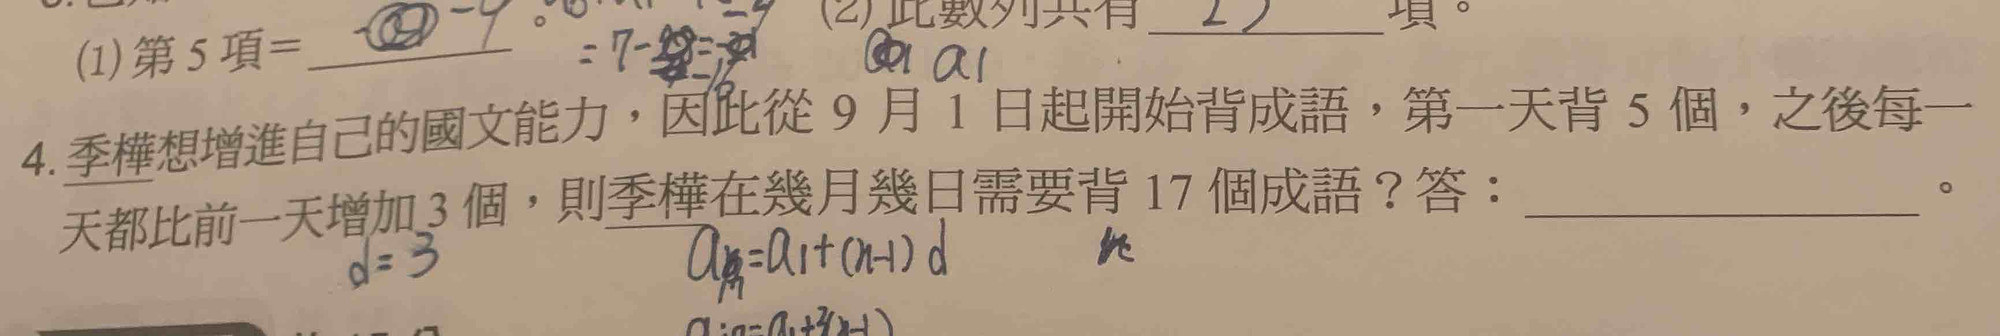 (2) 此數列共有 項。
(1) 第 5 項= -9 。
= 7-
a1
4. 季樺想增進自己的國文能力，因此從 9 月 1 日起開始背成語，第一天背 5 個，之後每一
天都比前一天增加 3 個，則季樺在幾月幾日需要背 17 個成語？答：。
d=3
=a1+(n-1)d